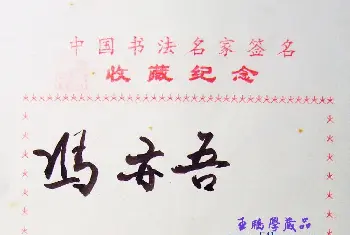 中国书法名家签名
收藏纪念
冯亦吾
王鹏学藏品